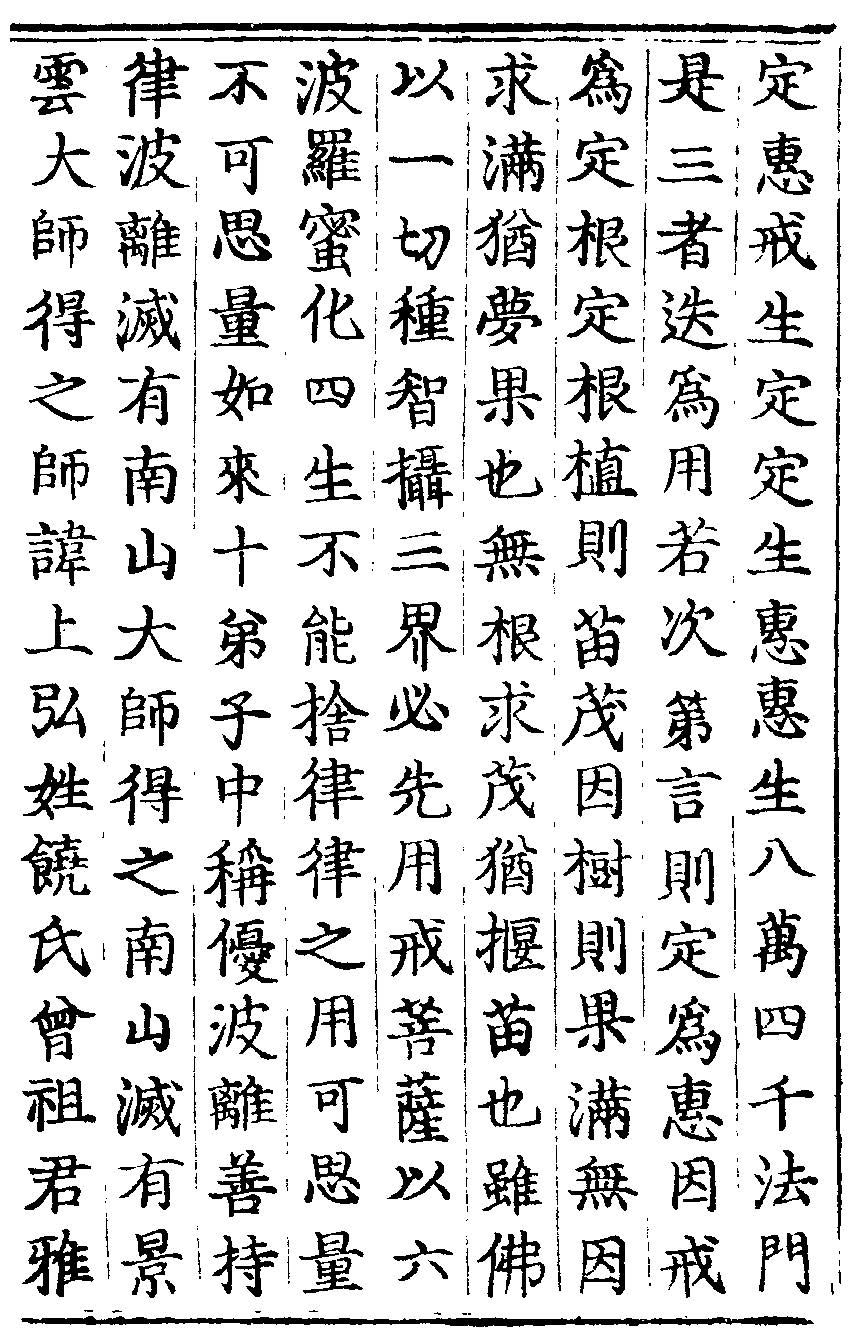 定惠戒生定定生惠惠生八萬四千法門
是三者迭爲用若次第言則定爲惠因戒
爲定根定根植則苗茂因樹則果滿無因
求滿猶夢果也無根求茂猶揠苗也雖佛
以一切種智攝三界必先用戒菩薩以六
波羅蜜化四生不能捨律律之用可思量
不可思量如來十弟子中稱優波離善持
律波離滅有南山大師得之南山滅有景
雲大師得之師諱上弘姓饒氏曾祖君雅